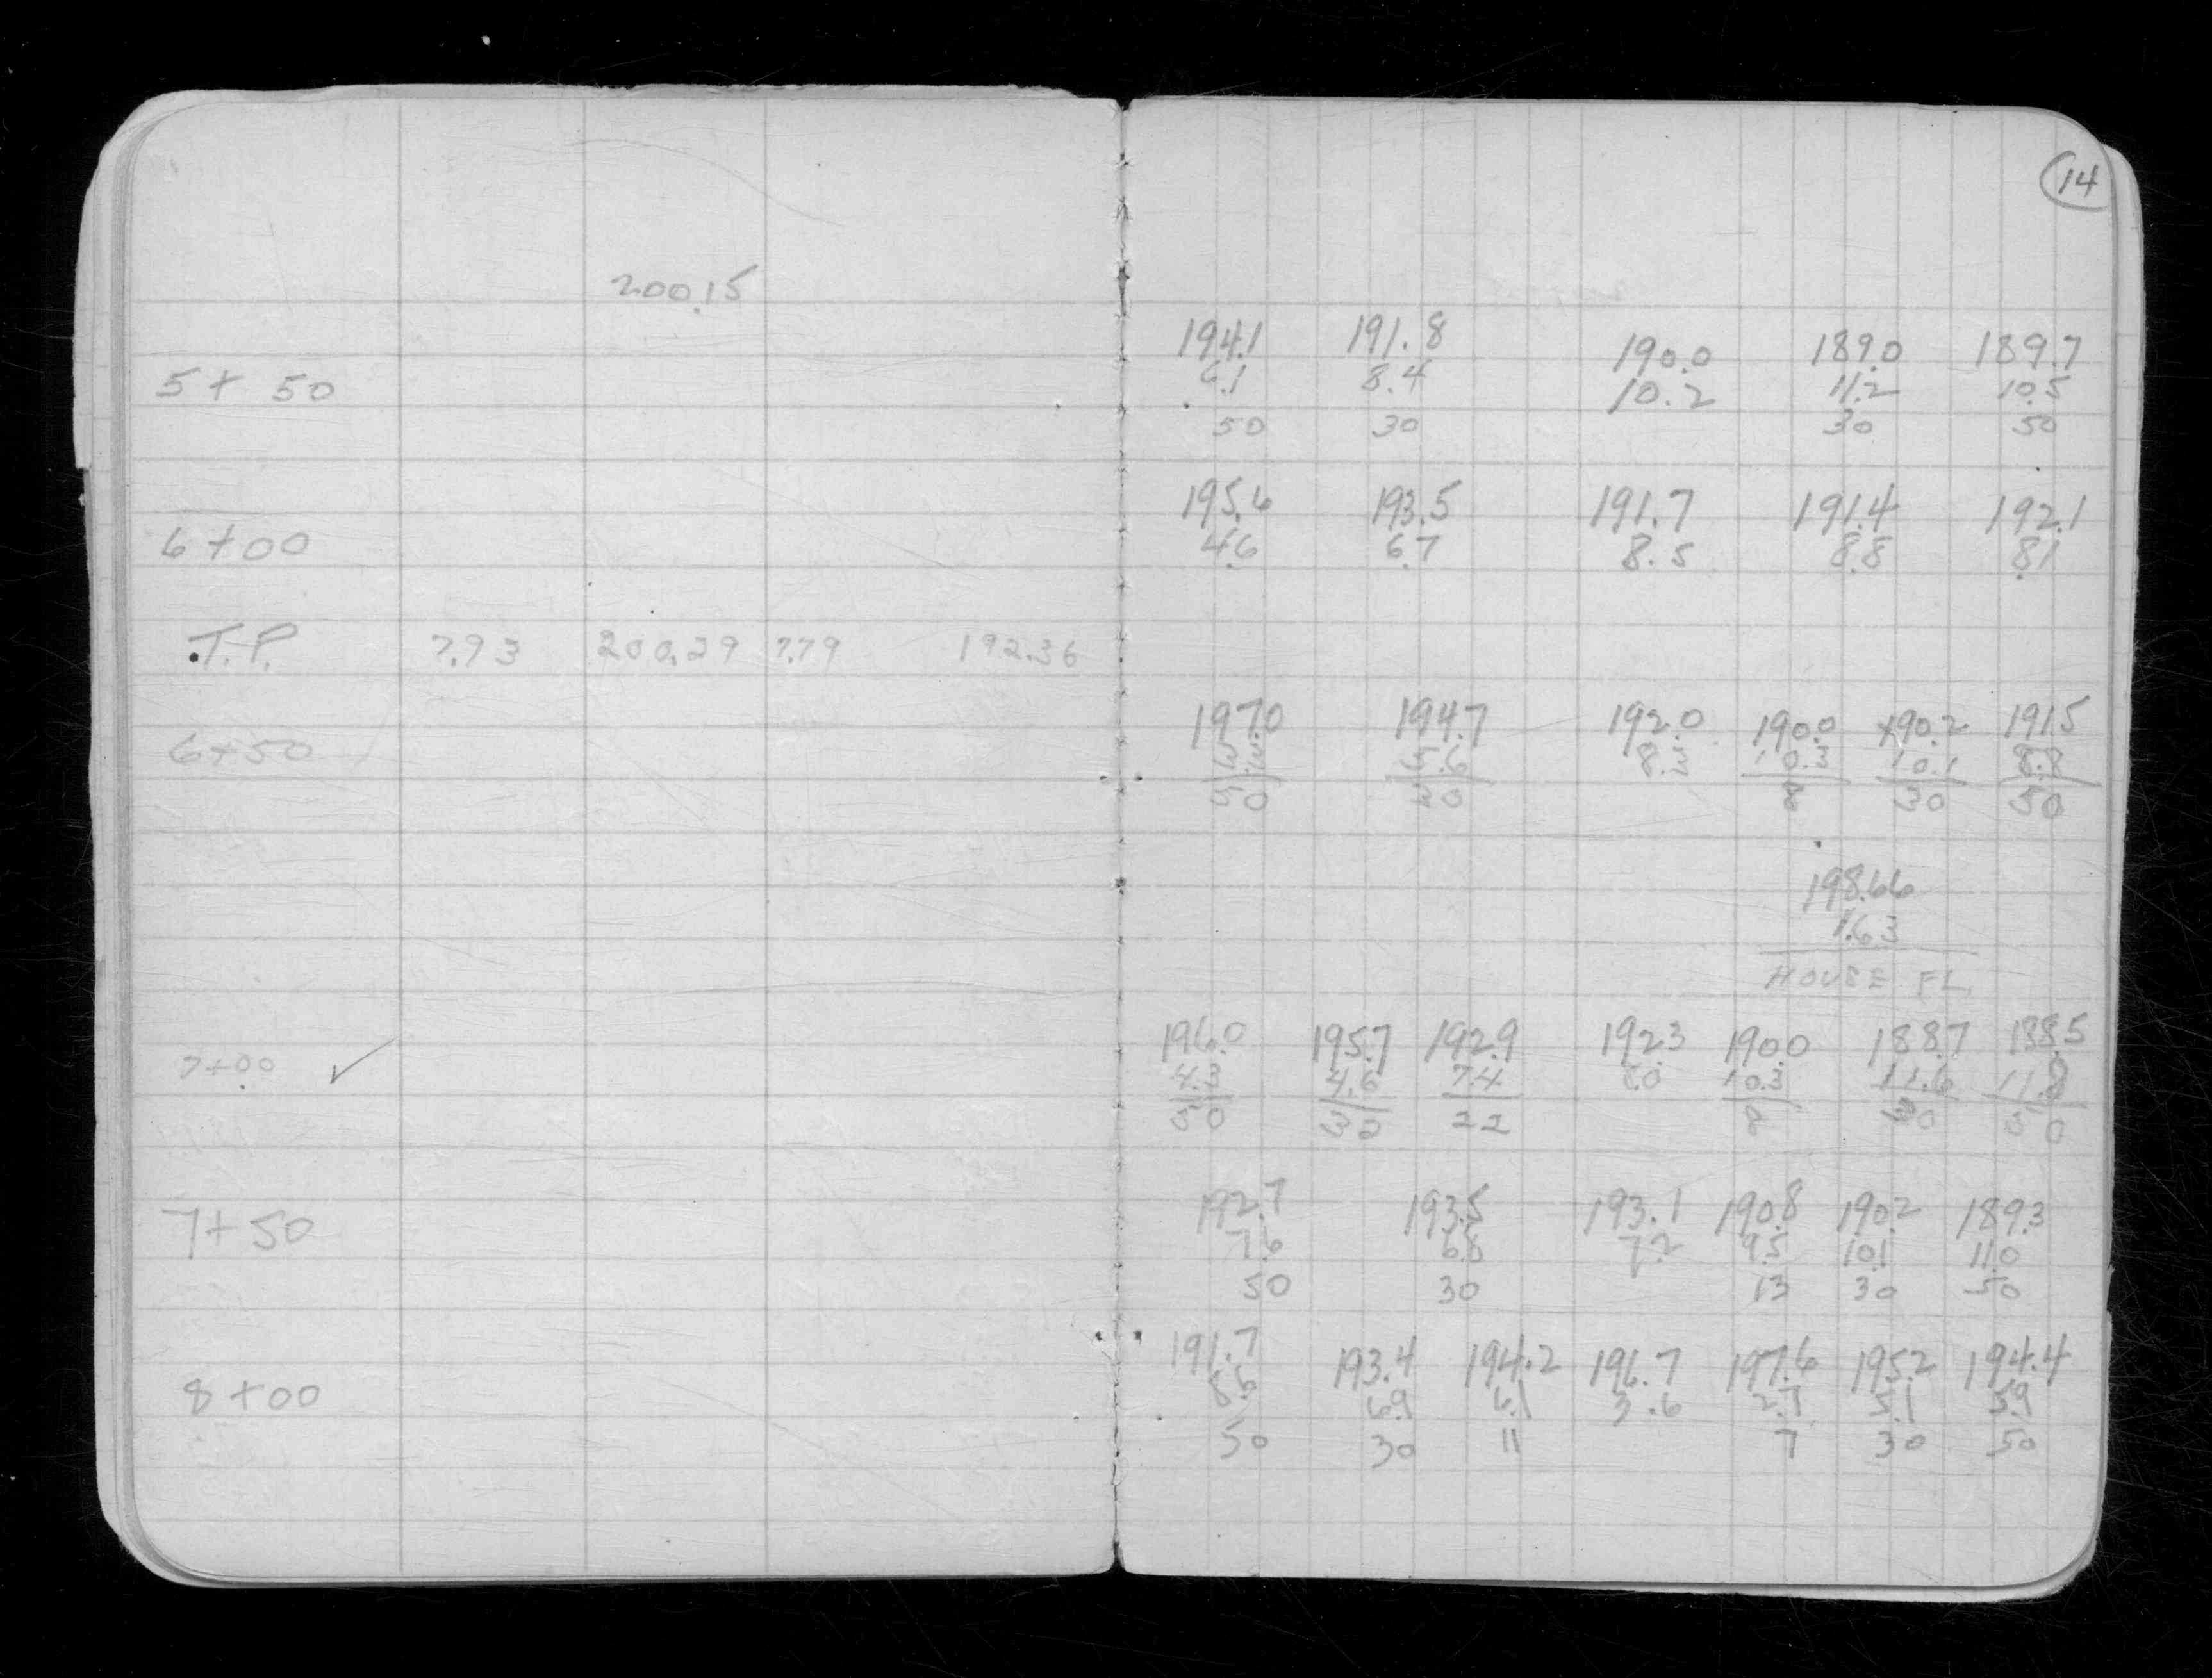 14
200.15
194.1 191.8 190.0 189.0 189.7
5+50 6.1 8.4 10.2 11.2 10.5
50 30 30 50
195.6 193.5 191.7 191.4 192.1
6+00 4.6 6.7 8.5 8.8 8.1
T.P. 7.93 200.29 7.79 192.36
197.0 194.7 192.0 190.0 190.2 191.5
6+50 3.3 5.6 8.3 10.3 10.1 8.8
50 30 8 30 50
198.66
1.63
HOUSE FL.
196.0 195.7 192.9 192.3 190.0 188.7 188.5
7+00 ✓ 4.3 4.6 7.4 8.0 10.3 11.6 11.8
50 30 22 8 30 50
192.7 193.5 193.1 190.8 190.2 189.3
7+50 7.6 6.8 7.2 9.5 10.1 11.0
50 30 13 30 50
191.7 193.4 194.2 196.7 197.6 195.2 194.4
8+00 8.6 6.9 6.1 3.6 2.7 5.1 5.9
50 30 11 7 30 50